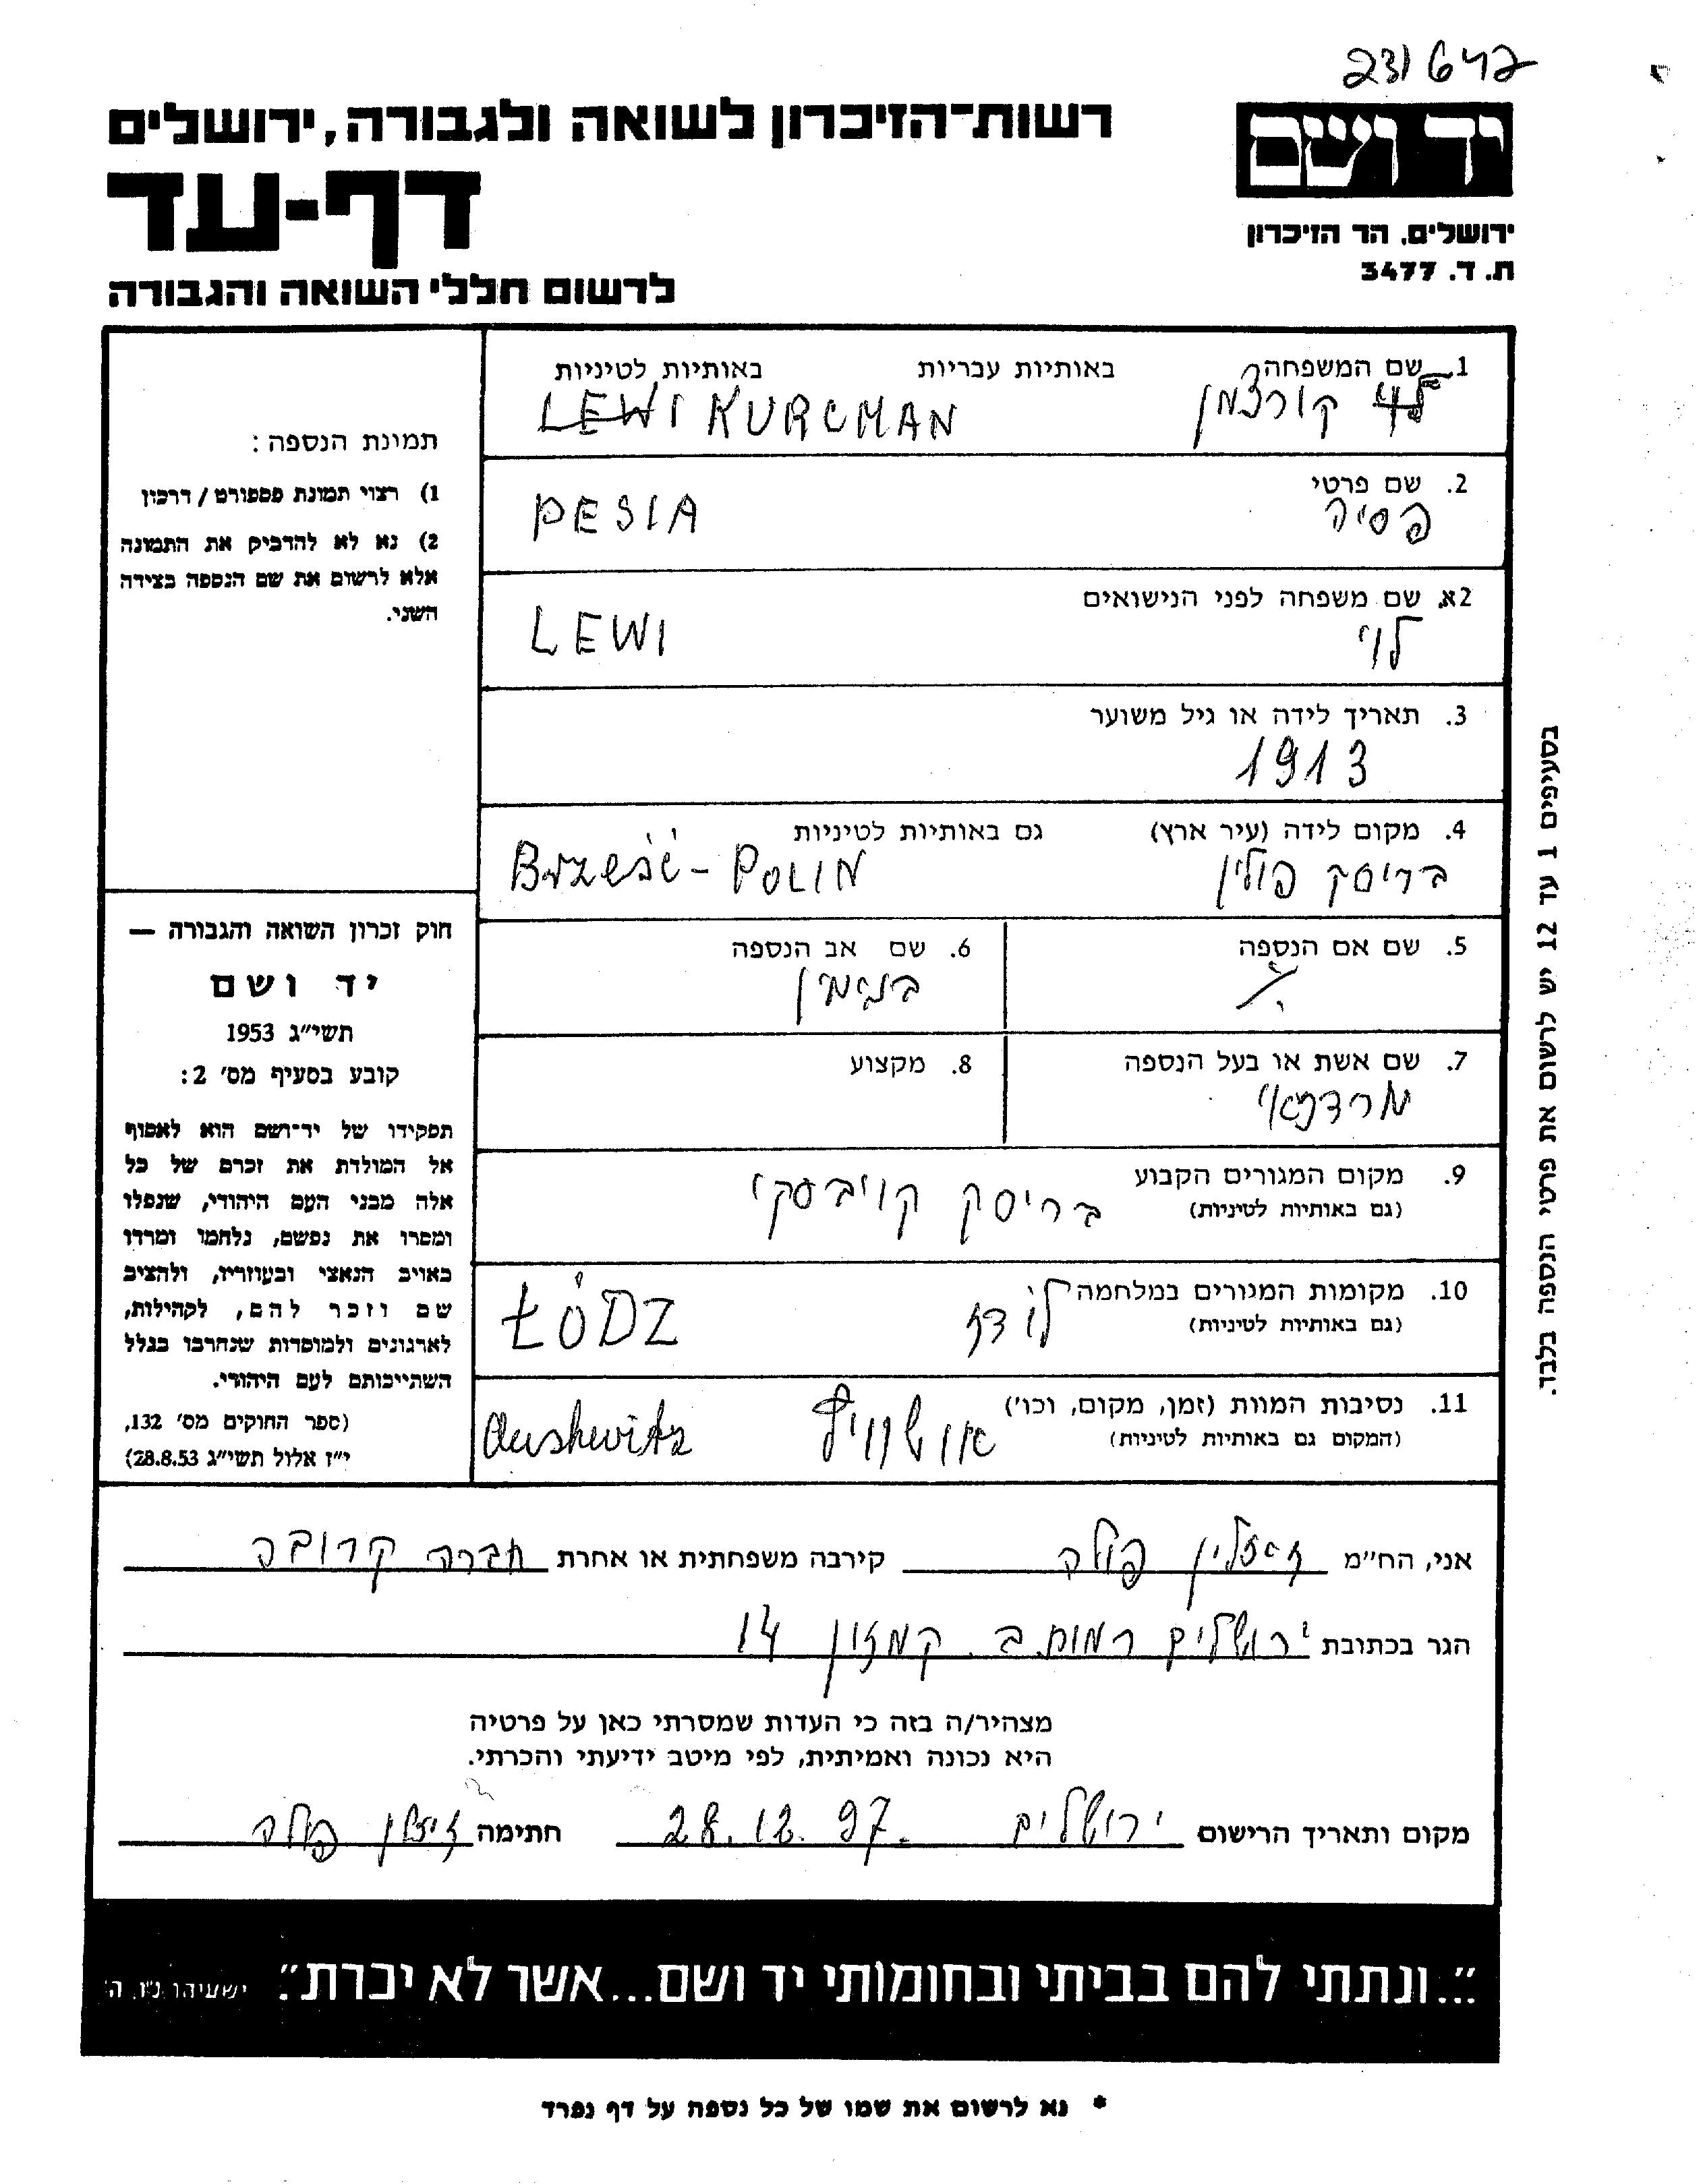 231642
יד ושם
רשות-הזיכרון לשואה ולגבורה, ירושלים
דף-עד
ירושלים, הר הזיכרון
ת. ד. 3477
לרשום חללי השואה והגבורה
1. שם המשפחה באותיות עבריות באותיות לטיניות
לוי קורצמן LEWI KURCMAN
2. שם פרטי
פסיה PESIA
2א. שם משפחה לפני הנישואים
לוי LEWI
3. תאריך לידה או גיל משוער
1913
4. מקום לידה (עיר ארץ) גם באותיות לטיניות
בריסק פולין Brześć - POLIN
5. שם אם הנספה
6. שם אב הנספה
בנימין
7. שם אשת או בעל הנספה
מרדכאי
8. מקצוע
9. מקום המגורים הקבוע
(גם באותיות לטיניות)
בריסק קויבסקי
10. מקומות המגורים במלחמה
(גם באותיות לטיניות)
לודז ŁÓDZ
11. נסיבות המוות (זמן, מקום, וכו')
(המקום גם באותיות לטיניות)
אושוויץ Aushwitz
תמונת הנספה:
1) רצוי תמונת פספורט / דרכון
2) נא לא להדביק את התמונה
אלא לרשום את שם הנספה בצידה
השני.
חוק זכרון השואה והגבורה —
יד ושם
תשי"ג 1953
קובע בסעיף מס' 2:
תפקידו של יד-ושם הוא לאסוף
אל המולדת את זכרם של כל
אלה מבני העם היהודי, שנפלו
ומסרו את נפשם, נלחמו ומרדו
באויב הנאצי ובעוזריו, ולהציב
שם וזכר להם, לקהילות,
לארגונים ולמוסדות שנחרבו בגלל
השתייכותם לעם היהודי.
(ספר החוקים מס' 132,
י"ז אלול תשי"ג 28.8.53)
בסעיפים 1 עד 12 יש לרשום את פרטי הנספה בלבד.
אני, הח"מ פולה קירבה משפחתית או אחרת חברה קרובה
הגר בכתובת ירושלים רמות ב. קמזון 14
מצהיר/ה בזה כי העדות שמסרתי כאן על פרטיה
היא נכונה ואמיתית, לפי מיטב ידיעתי והכרתי.
מקום ותאריך הרישום ירושלים 28.12.97. חתימה פולה
"...ונתתי להם בביתי ובחומותי יד ושם...אשר לא יכרת". ישעיהו נ"ו, ה'
* נא לרשום את שמו של כל נספה על דף נפרד